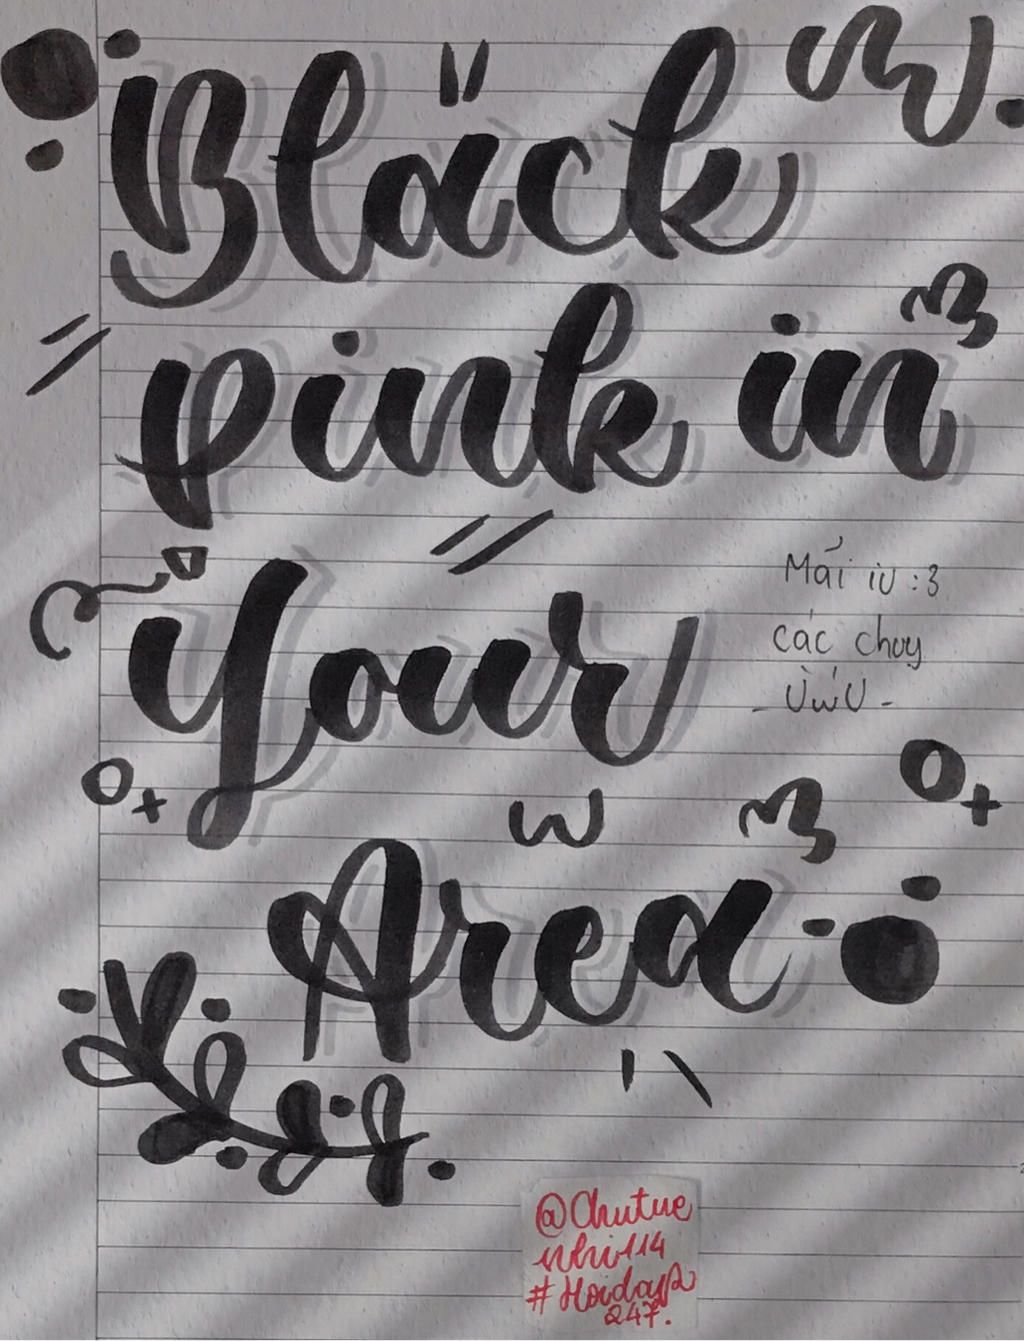 Black
pink in
Your
Mãi iu :3
các chay
- ÙwÚ -
Area
@Chutue
nhi114
#Hoidap
247.